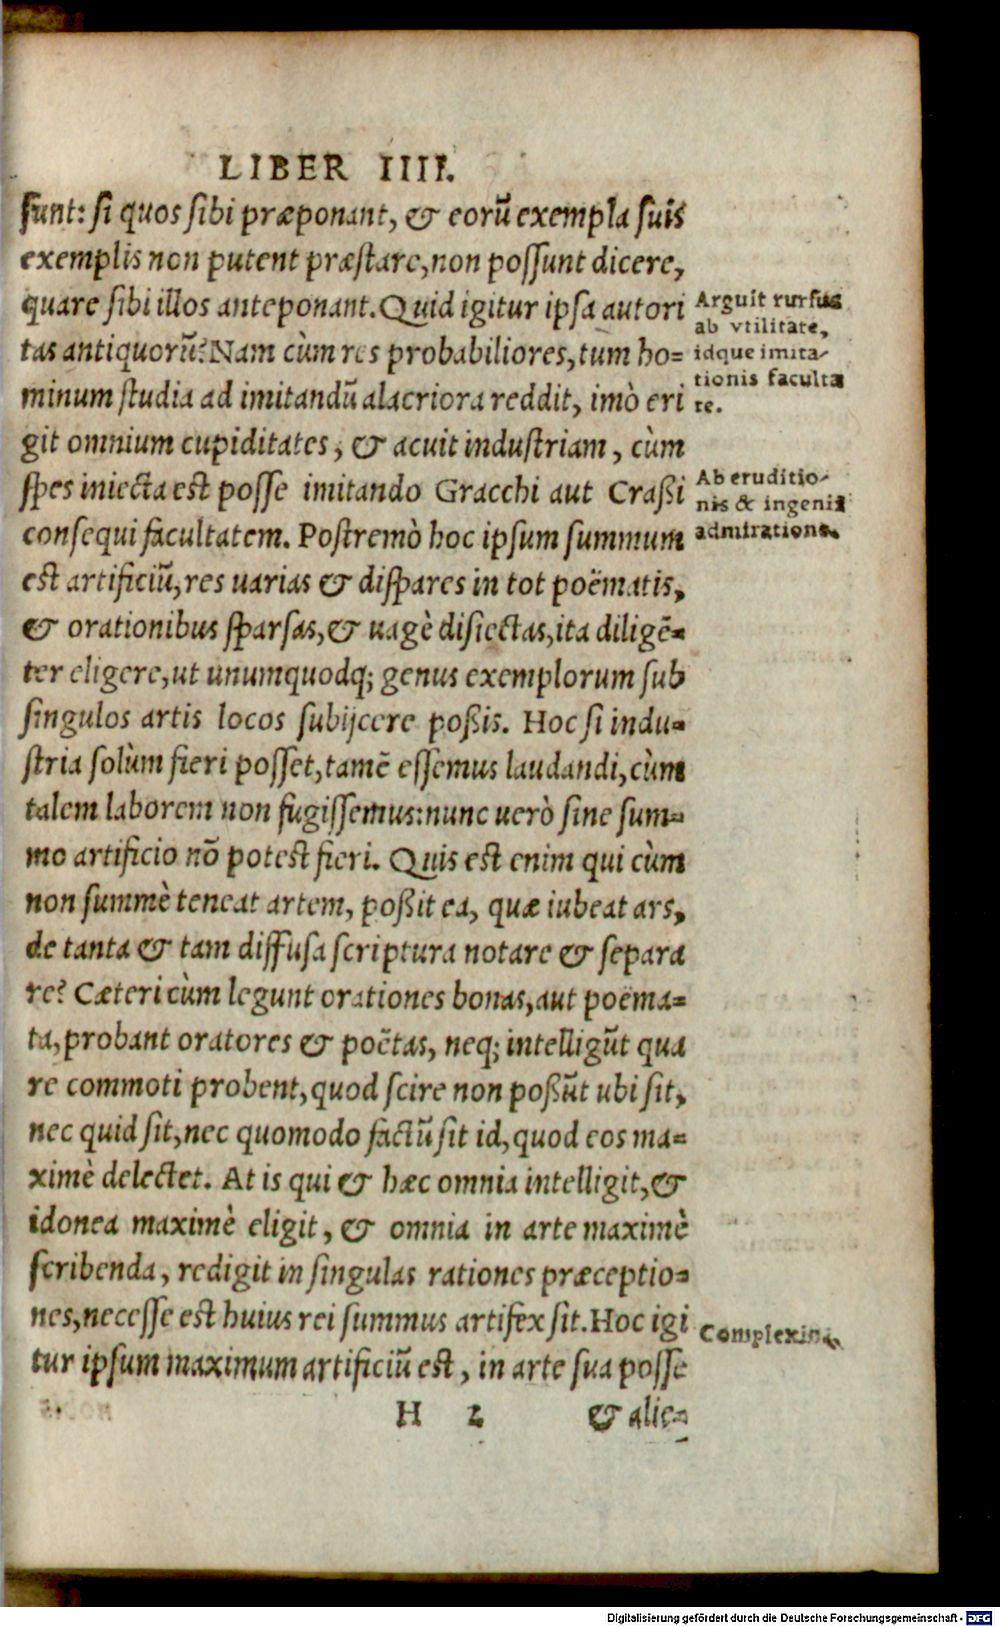 LIBER IIII.
sunt: si quos sibi præponant, & eorũ exempla suis
exemplis non putent præstare, non possunt dicere,
quare sibi illos anteponant. Quid igitur ipsa autori
tas antiquorũ? Nam cùm res probabiliores, tum ho=
minum studia ad imitandũ alacriora reddit, imò eri
git omnium cupiditates, & acuit industriam, cùm
spes iniecta est posse imitando Gracchi aut Craßi
consequi facultatem. Postremò hoc ipsum summum
est artificiũ, res uarias & dispares in tot poëmatis,
& orationibus sparsas, & uagè disiectas, ita diligẽ=
ter eligere, ut unumquodq; genus exemplorum sub
singulos artis locos subijcere poßis. Hoc si indu=
stria solùm fieri posset, tamẽ essemus laudandi, cùm
talem laborem non fugissemus: nunc uerò sine sum=
mo artificio nõ potest fieri. Quis est enim qui cùm
non summè teneat artem, poßit ea, quæ iubeat ars,
de tanta & tam diffusa scriptura notare & separa
re? Cæteri cùm legunt orationes bonas, aut poëma=
ta, probant oratores & poëtas, neq; intelligũt qua
re commoti probent, quod scire non poßũt ubi sit,
nec quid sit, nec quomodo factũ sit id, quod eos ma=
ximè delectet. At is qui & hæc omnia intelligit, &
idonea maximè eligit, & omnia in arte maximè
scribenda, redigit in singulas rationes præceptio=
nes, necesse est huius rei summus artifex sit. Hoc igi
tur ipsum maximum artificiũ est, in arte sua posse
H 2 & alie=
Arguit rursus
ab vtilitate,
idque imita-
tionis faculta
te.
Ab eruditio-
nis & ingenii
admiratione.
Complexio.
Digitalisierung gefördert durch die Deutsche Forschungsgemeinschaft - DFG